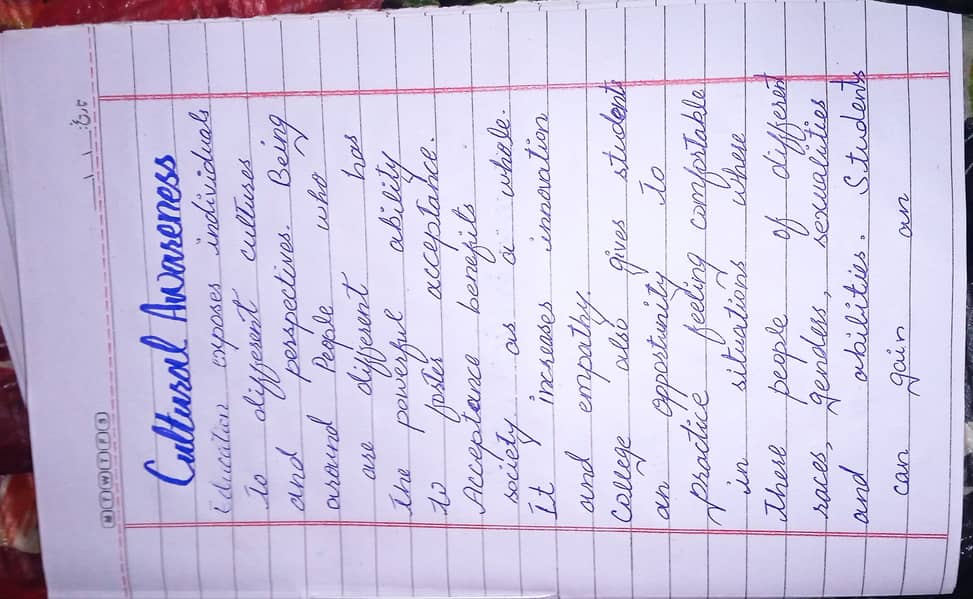 Cultural Awareness
Education exposes individuals
to different cultures
and perspectives. Being
around People who
are different has
the powerful ability
to foster acceptance.
Acceptance benefits
society as a whole.
It increases innovation
and empathy.
College also gives students
an opportunity to
practice feeling comfortable
in situations where
there people of different
races, genders, sexualities
and abilities. Students
can gain an
M T W T F S